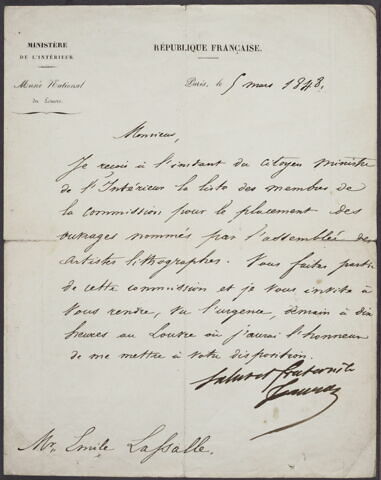 MINISTÈRE
DE L'INTÉRIEUR
Musée National
du Louvre.
RÉPUBLIQUE FRANÇAISE.
Paris, le 5 mars 1848.
Monsieur,
Je reçois à l'instant du Citoyen Ministre
de l'Intérieur la liste des membres de
la commission pour le placement des
ouvrages nommés par l'assemblée des
artistes lithographes. Vous faites partie
de cette commission et je vous invite à
vous rendre, vu l'urgence, demain à dix
heures au Louvre où j'aurai l'honneur
de me mettre à votre disposition.
Salut et fraternité
Mr. Emile Lassalle.